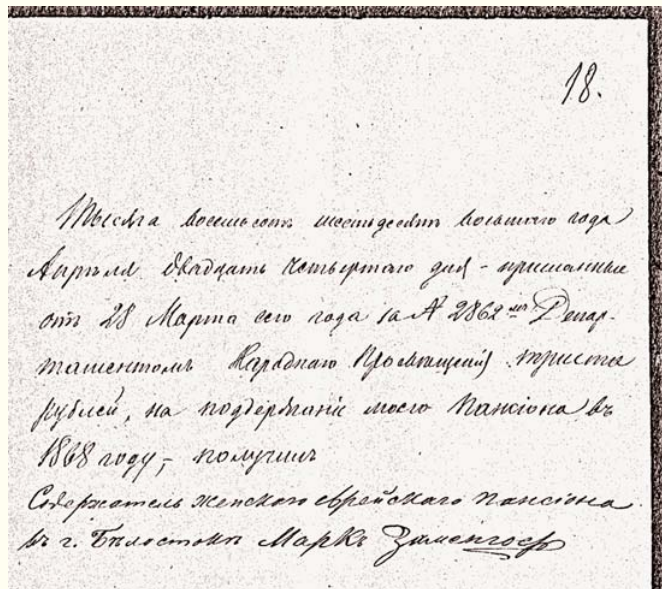 18.
Тысяча восемьсотъ шестьдесятъ восьмого года
Апрѣля двадцать четвертаго дня - присланные
отъ 28 Марта сего года за № 2862мъ Депар-
таментомъ Народнаго Просвѣщенія триста
рублей, на поддержаніе моего пансіона въ
1868 году, - получилъ
Содержатель женскаго еврейскаго пансіона
въ г. Бѣлостокѣ Маркъ Заменгофъ